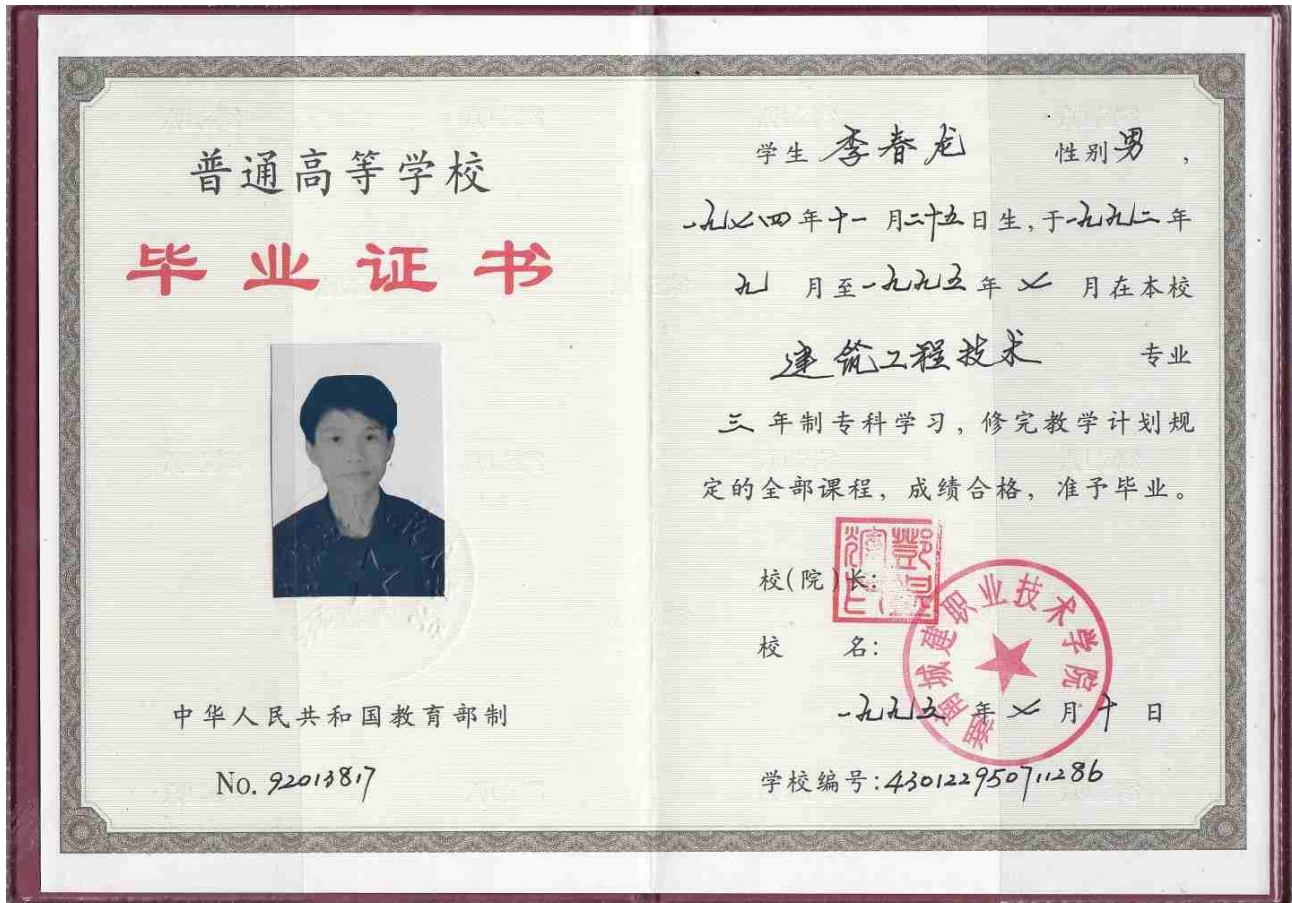 普通高等学校
毕业证书
中华人民共和国教育部制
No. 92013817
学生 李春龙 性别 男 ,
一九七四年十一月二十五日生,于一九九二年
九 月至一九九五年 七 月在本校
建筑工程技术 专业
三 年制专科学习,修完教学计划规
定的全部课程,成绩合格,准予毕业。
校(院)长:
校 名:
湖南城建职业技术学院
一九九五 年 七 月 十 日
学校编号:430122950711286